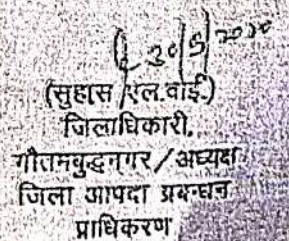 30/5/2020
(सुहास एल.वाई.)
जिलाधिकारी,
गौतमबुद्धनगर/अध्यक्ष
जिला आपदा प्रबन्धन
प्राधिकरण